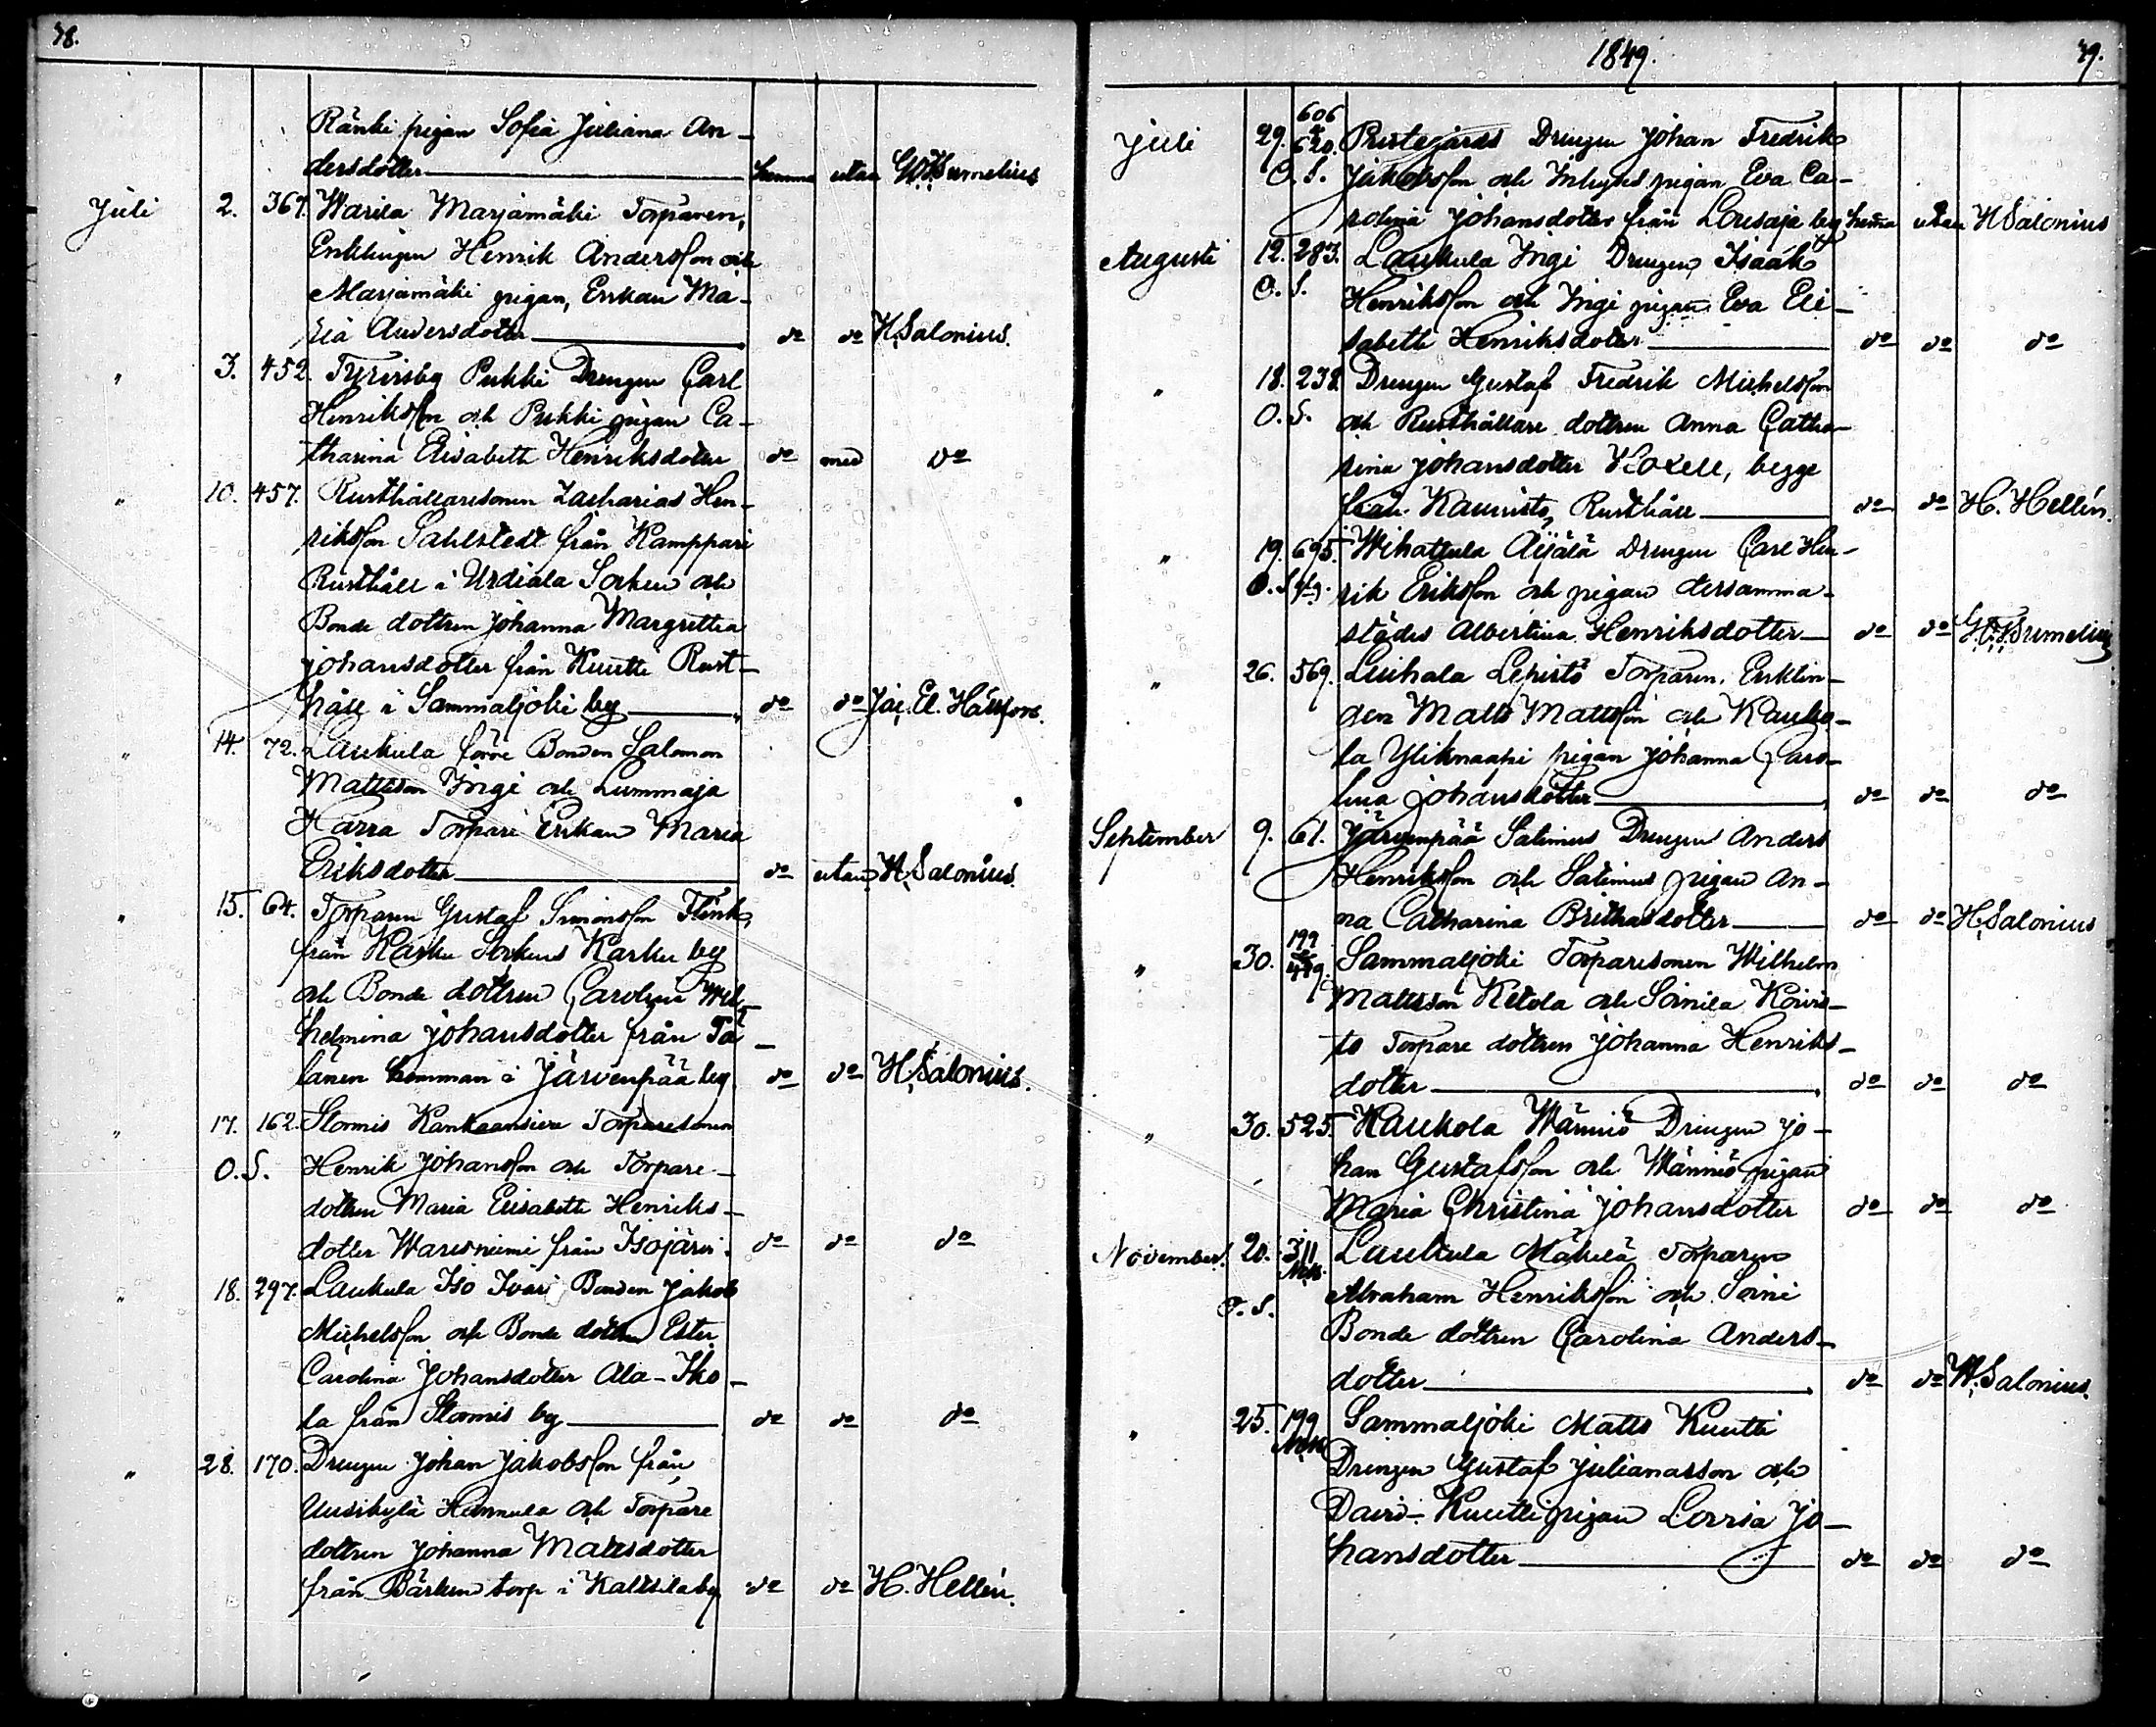 78.
Ränki pigan Sofia Juliana An-
dersdotter hemma utan
Juli 2. 367. Warila Marjamäki Torparen,
Enklingen Henrik Andersson och
Marjamäki pigan, Enkan Ma-
ria Andersdotter do do H. Salonius.
" 3. 452. Tyrisby Pukki Drengen Carl
Henriksson och Pukki pigan Ca-
tharina Elisabeth Henriksdotter do med do
" 10. 457. Rusthållaresonen Zacharias Hen-
riksson Sahlstedt från Kamppari
Rusthåll i Urdiala Socken och
Bonde dottren Johanna Margretha
Johansdotter från Kuutti Rust-
håll i Sammaljoki by do do
" 14. 72. Laukula förre Bonden Salomon
Mattsson Yngi och Lummaja
Harra Torpare Enkan Maria
Eriksdotter do utan H. Salonius.
" 15. 64. Torparen Gustaf Simonsson Flink
från Karku Sockens Karku by
och Bonde dottren Carolina Wil-
helmina Johansdotter från Ta-
lanen hemman i Järvenpää by do do H. Salonius.
" 17. 162. Stormis Torparesonen
O.S. Henrik Johansson och Torpare-
dottren Maria Elisabeth Henriks-
dotter Waresniemi från Isojärvi. do do do
" 18. 297. Laukula Iso Ivari Bonden Jakob
Michelsson och Bonde dottren Ester
Carolina Johansdotter Ala-Sko-
la från Stormis by do do do
" 28. 170. Drengen Johan Jakobsson från
Uusikylä Hannula och Torpare
dottren Johanna Mattsdotter
från Bärkin torp i Kaltsila by do do H. Hellén.
1849. 79.
Juli 29. 606 & 620. Prestegårds Drengen Johan Fredrik
O.S. Jakobsson och Inhyses pigan Eva Ca-
rolina Johansdotter från Lousaja by hemma utan H. Salonius
Augusti 12. 283. Laukula Yngi Drengen Isaak
O.S. Henriksson och Yngi pigan Eva Eli-
sabeth Henriksdotter do do do
" 18. 238. Drengen Gustaf Fredrik Michelsson
O.S. och Rusthållare dottren Anna Catha-
rina Johansdotter Koxell, begge
från Kaunisto Rusthåll do do H. Hellén.
" 19. 695. Wihattula Äijälä Drengen Carl Hen-
O.S. rik Eriksson och pigan dersamma-
städes Albertina Henriksdotter do do
" 26. 569. Liuhala Lepistö Torparen, Enklin-
gen Matts Mattsson och Kauko-
la Yliknaapi pigan Johanna Caro-
lina Johansdotter do do do
September 9. 61. Järvenpää Salimus Drengen Anders
Henriksson och Salimus pigan An-
na Catharina Brithasdotter do do H. Salonius
" 30. 199 & Sammaljoki Torparesonen Wilhelm
Mattsson Ketola och Soinila Koivis-
to Torpare dottren Johanna Henriks-
dotter do do do
" 30. 525. Kaukola Wänniö Drengen Jo-
han Gustafsson och Wänniö pigan
Maria Christina Johansdotter do do do
November. 20. 311 Laukula Mäkilä Torparen
O.S. Abraham Henriksson och Soini
Bonde dottren Carolina Anders-
dotter do do H. Salonius.
" 25. 199 Sammaljoki Matts Kuutti
Drengen Gustaf Julianasson och
David-Kuutti pigan Lovisa Jo-
hansdotter do do do